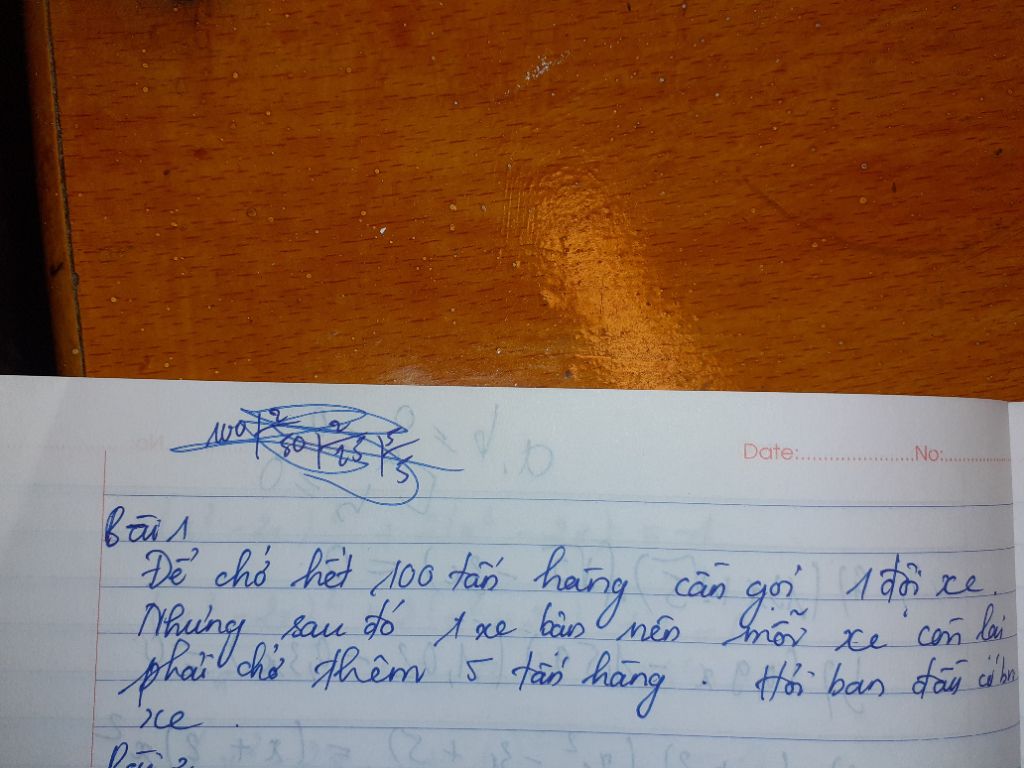 Date:....................No:..............
Bài 1
Để chở hết 100 tấn hàng cần gọi 1 đội xe.
Nhưng sau đó 1 xe bận nên mỗi xe còn lại
phải chở thêm 5 tấn hàng. Hỏi ban đầu có bn
xe.